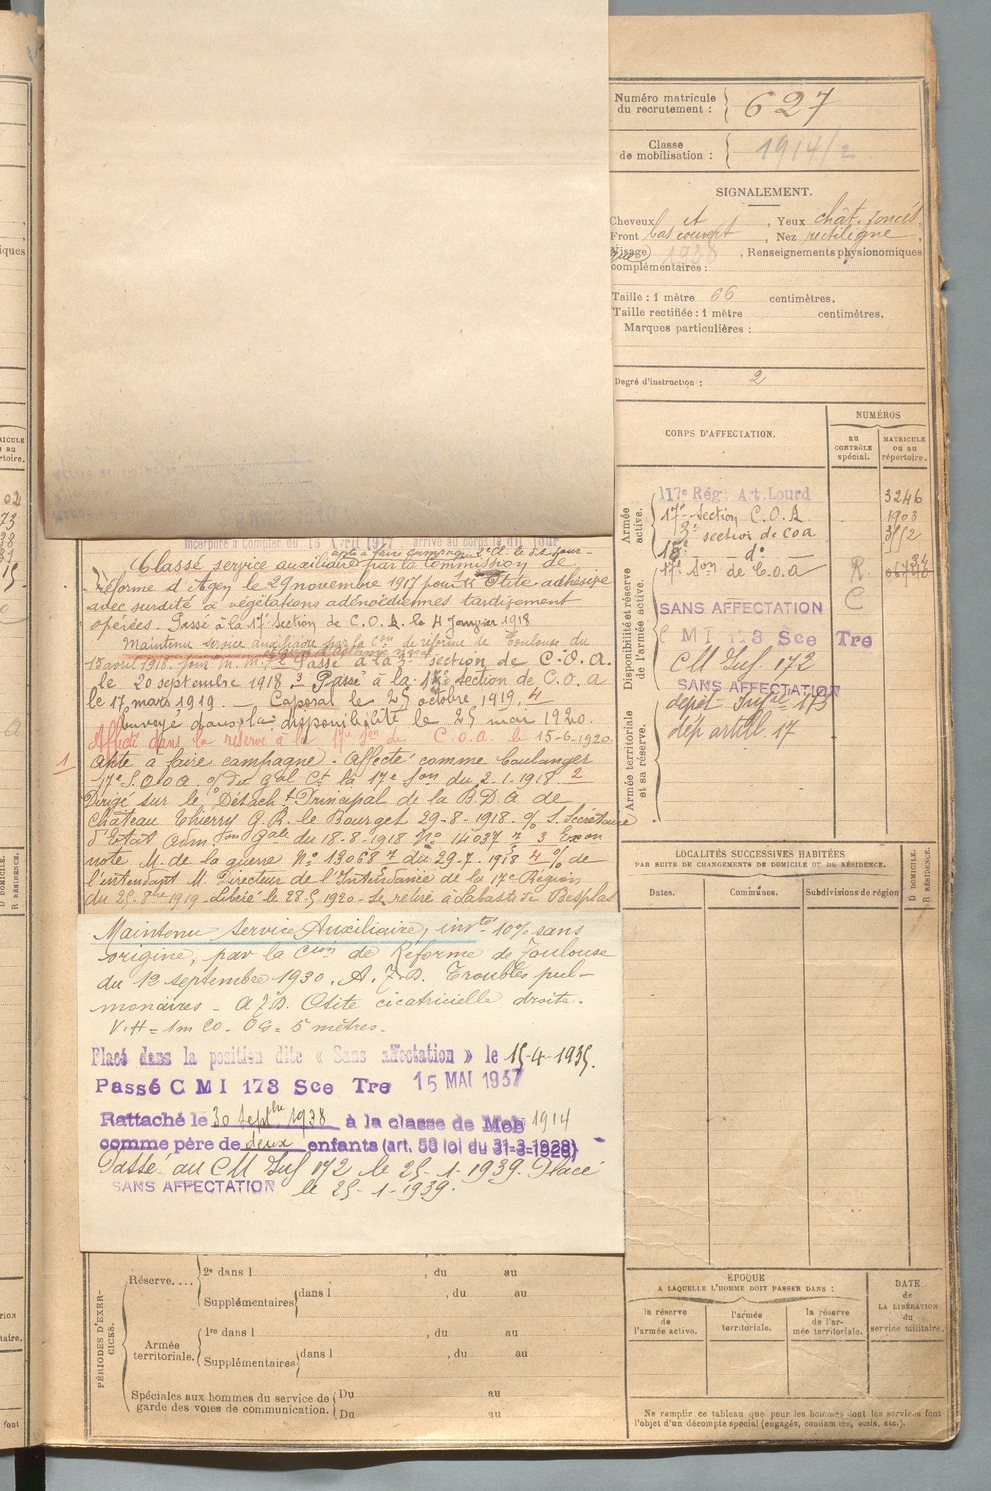 Numéro matricule
du recrutement : 627
Classe
de mobilisation : 1914/2
SIGNALEMENT.
Cheveux et , Yeux chât. foncés,
Front bas couvert , Nez rectiligne,
Visage , Renseignements physionomiques
complémentaires :
Taille : 1 mètre 66 centimètres.
Taille rectifiée : 1 mètre centimètres.
Marques particulières :
Degré d'instruction : 2
CORPS D'AFFECTATION.
NUMÉROS
AU CONTRÔLE spécial.
MATRICULE ou au répertoire.
Armée active.
117e Rég. Art. Lourd 3246
17e Section C.O.A. 1903
2e section de coa
15e do
Disponibilité et réserve de l'armée active.
17e Son de C.O.A R.
SANS AFFECTATION C
C M I 173 Sce Tre
CM Inf. 172
SANS AFFECTATION
Armée territoriale et sa réserve.
dépôt 173
dép artill. 17
incorporé à compter du 16 Avril 1917 arrivé au corps le dit jour
Classé service auxiliaire par la Commission de
réforme d'Agen le 29 novembre 1917 pour Otite adhésive
avec surdité & végétations adénoïdiennes tardivement
opérées. Passé à la 17e Section de C.O.A. le 4 Janvier 1918
Maintenu service auxiliaire par la Con de réforme de Toulouse du
18 avril 1918. Passé à la 3e section de C.O.A.
le 20 septembre 1918. 3 Passé à la 15e section de C.O.A
le 17 mars 1919. Caporal le 25 octobre 1919. 4
Envoyé dans la disponibilité le 25 mai 1920.
Affecté dans la réserve à la 17e Son de C.O.A. le 15-6-1920
1 Apte à faire campagne. Affecté comme boulanger
17e S.O.A. o/ Du Gal Ct la 17e Son du 2-1-1918 2
Dirigé sur le Détacht Principal de la B.D.A de
Château Thierry G.R. le Bourget 29-8-1918. o/ S. Secrétaire
d'Etat Adm. Gale du 18-8-1918 No 14037 3 Exon
note M. de la guerre No 13068 du 29-7-1918 4 o/ de
l'intendant M. Directeur de l'Intendance de la 17e Région
du 25-8bre 1919. Libéré le 28-5 1920. Se retire à Labastide Besplas
Maintenu Service Auxiliaire, invté 10% sans
origine, par la Cion de Réforme de Toulouse
du 12 septembre 1930. A.J.D. Troubles pul-
monaires - A J D. Otite cicatricielle droite.
V.H = 1m 20. OG = 5 mètres.
Placé dans la position dite « Sans affectation » le 15-4-1935.
Passé C M I 173 Sce Tre 15 MAI 1937
Rattaché le 30 Septbre 1938 à la classe de Mob 1914
comme père de deux enfants (art. 58 loi du 31-3-1928)
Passé au CM Inf 172 le 25-1-1939. Placé
SANS AFFECTATION le 25-1-1939.
LOCALITÉS SUCCESSIVES HABITÉES
PAR SUITE DE CHANGEMENTS DE DOMICILE OU DE RÉSIDENCE.
Dates. Communes. Subdivisions de région
D DOMICILE. R RÉSIDENCE.
PÉRIODES D'EXERCICES.
Réserve.... 2e dans l , du au
Supplémentaires dans l , du au
Armée territoriale. 1re dans l , du au
Supplémentaires dans l , du au
Spéciales aux hommes du service de Du au
garde des voies de communication. Du au
ÉPOQUE
A LAQUELLE L'HOMME DOIT PASSER DANS :
la réserve de l'armée active.
l'armée territoriale.
la réserve de l'armée territoriale.
DATE de LA LIBÉRATION du service militaire.
Ne remplir ce tableau que pour les hommes dont les services font
l'objet d'un décompte spécial (engagés, condamnés, omis, etc.).